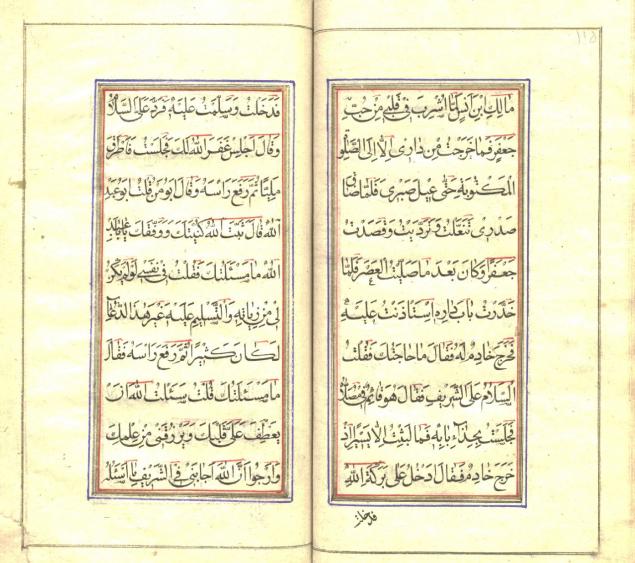 ١١٥
مالك ابن انس لما اشرب في قلبي من حب
جعفر فما خرجت من داري الا الى الصلوة
المكتوبة حتى عيل صبري فلما ضاق
صدري تنعلت وترديت وقصدت
جعفرا وكان بعد ما صليت العصر فلما
باب داره استاذنت عليه
فخرج خادم له فقال ما حاجتك فقلت
السلام على الشريف فقال هو قائم في مصلاه
فجلست بحذاء بابه فما لبثت الا يسيرا اذ
خرج خادم فقال دخل على بركة الله
فدخلت
فدخلت وسلمت عليه فرد على السلام
وقال اجلس غفر الله لك فجلست فاطرق
مليا ثم رفع راسه وقال ابو من قلت ابو عبد
الله قال ثبت الله كنيتك ووفقك يا ابا عبد
الله ما مسئلتك فقلت في نفسي لو لم يكن
لي من زيارته والتسليم عليه غير هذا الدعاء
لكان كثيرا ثم رفع راسه فقال
ما مسئلتك قلت سئلت الله ان
يعطف على قلبك ويرزقني من علمك
وارجوا ان الله اجابني في الشريف ما اسئله